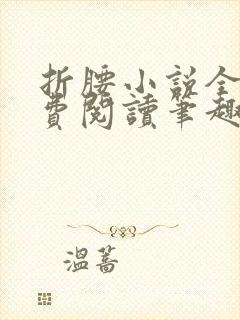 折腰小説全
費閱讀筆趣
溫蒿